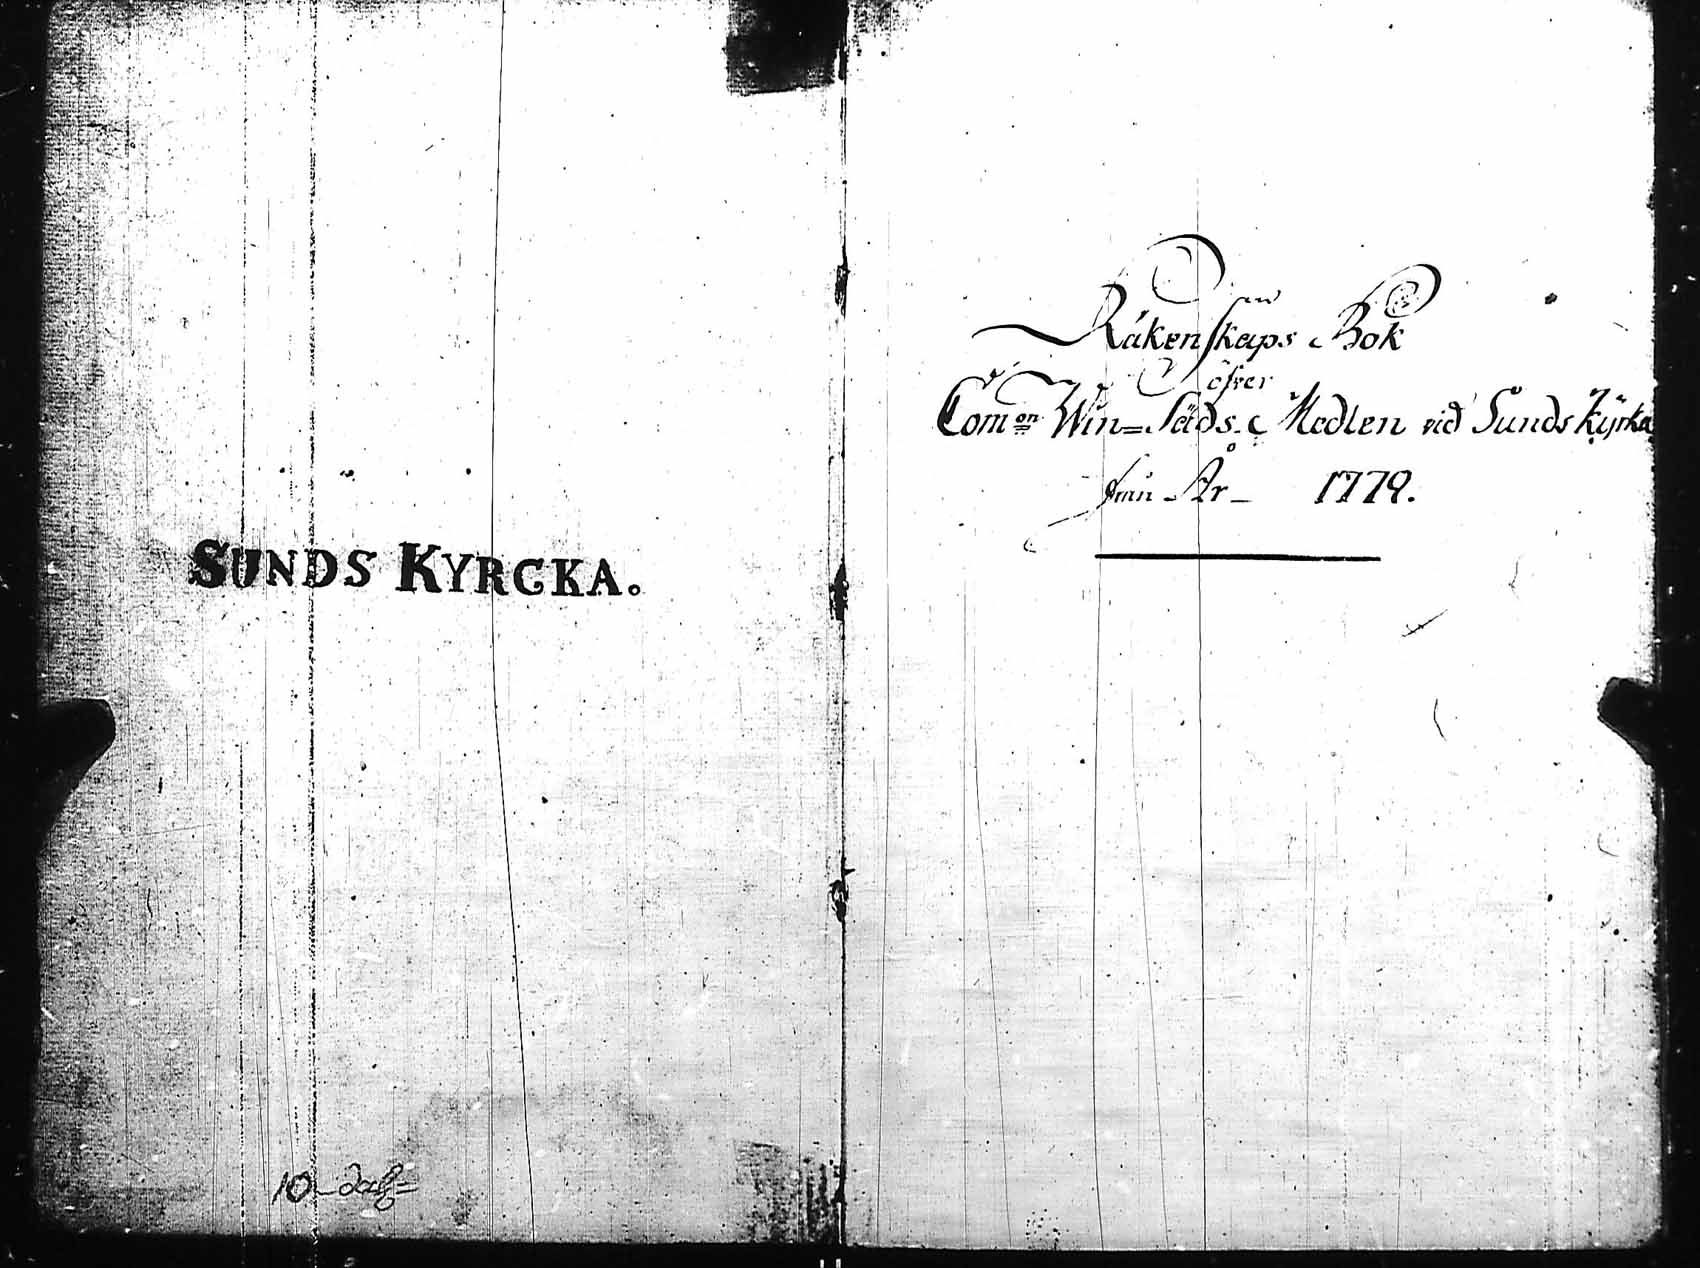 SUNDS KYRCKA.
10 dal:
Räkenskaps Bok
öfver
Com:on Win= Säds Medlen vid Sunds Kÿrka
från År 1779.